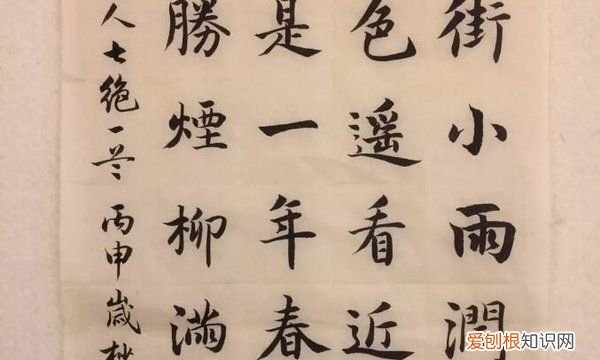 街小雨潤
色遥看近
是一年春
勝煙柳滿
人七絶一首 丙申歲杪
爱刨根知识网